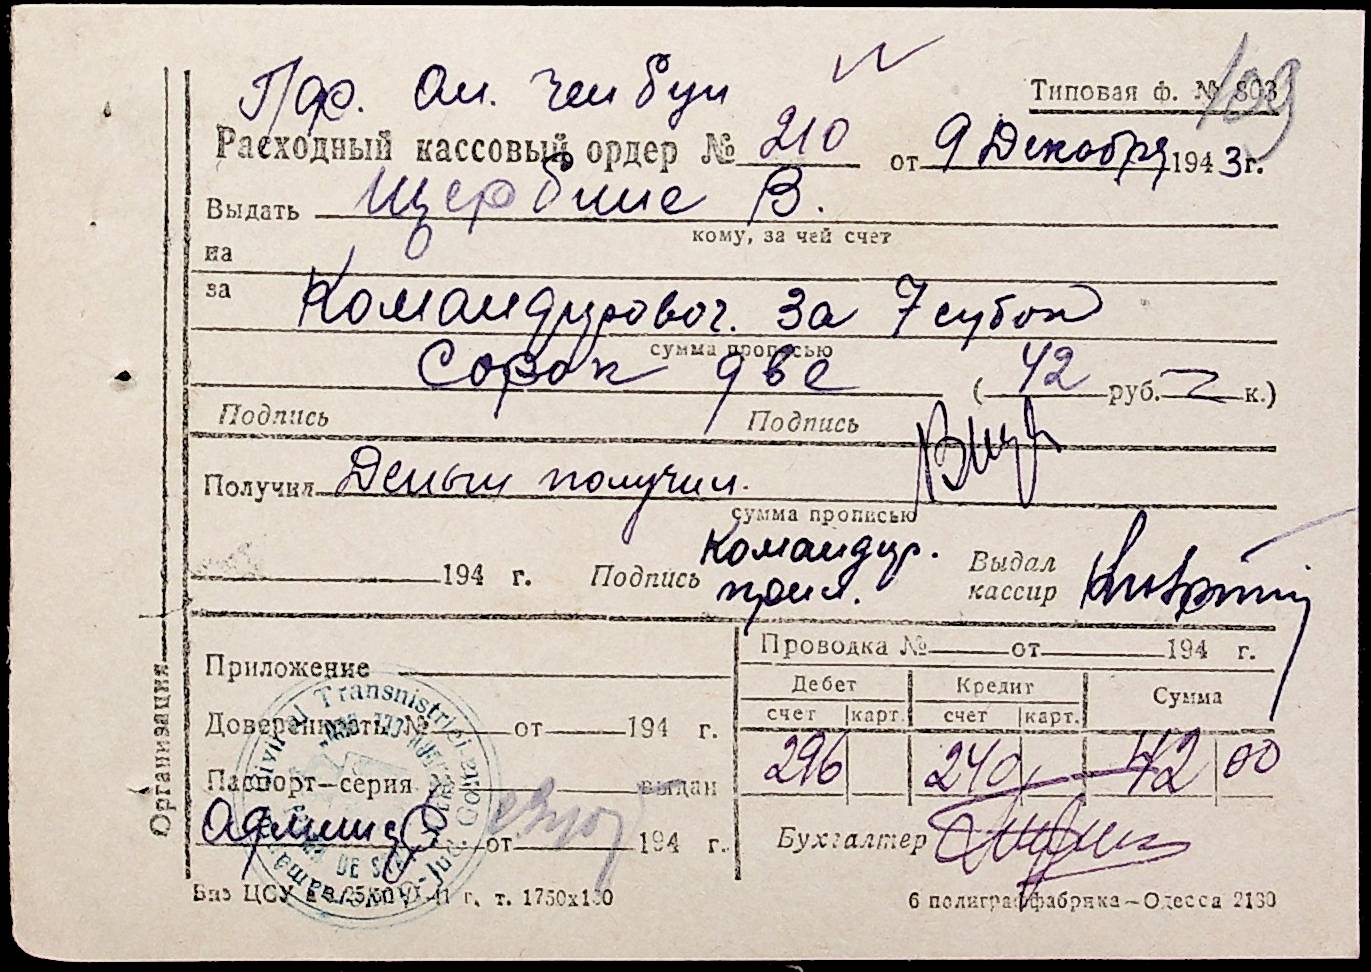 109
Типовая ф. № 803
Расходный кассовый ордер № 210 от 9 Декабря 1943 г.
Выдать Щербине В.
кому, за чей счет
на
за Командировоч. за 7 суток
сумма прописью
Сорок две (42 руб. к.)
Подпись Подпись
Получил Деньги получил.
сумма прописью
194 г. Подпись Командир. Выдал
кассир
Организация
Приложение
Проводка № от 194 г.
Дебет Кредит Сумма
счет карт. счет карт.
296 240 42 00
Доверенность № от 194 г.
Паспорт—серия выдан
от 194 г.
Бухгалтер
6 полиграффабрика—Одесса 2130
Transnistriei